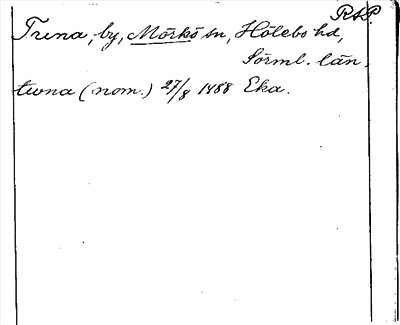 RAP.
Trena, by, Mörkö sn, Hölebo hd,
Sörml. län.
twna (nom.) 27/8 1488 Eka.